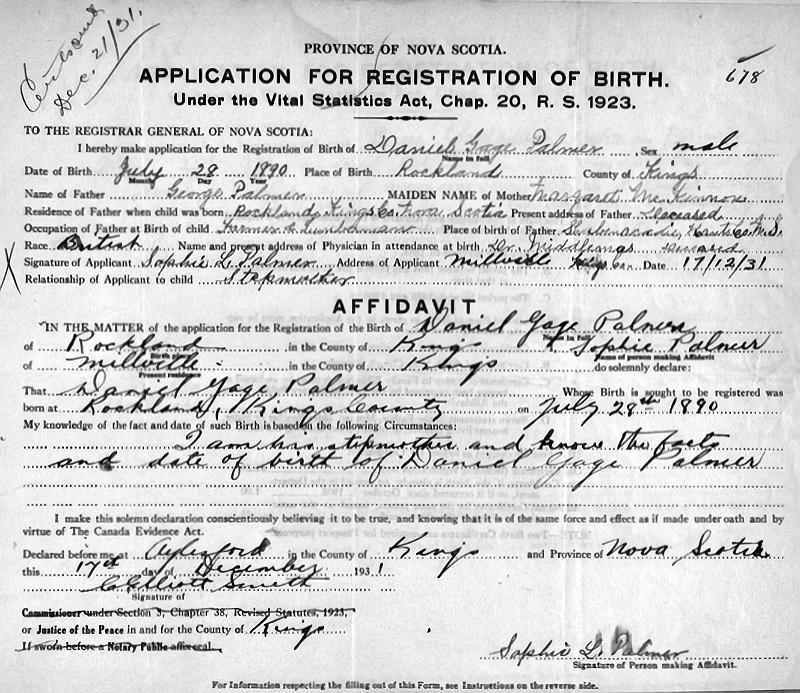 Dec. 21/31.
678
PROVINCE OF NOVA SCOTIA.
APPLICATION FOR REGISTRATION OF BIRTH.
Under the Vital Statistics Act, Chap. 20, R. S. 1923.
TO THE REGISTRAR GENERAL OF NOVA SCOTIA:
I hereby make application for the Registration of Birth of Daniel Gage Palmer Sex male
Name in full
Date of Birth July 28 1890 Place of Birth Rockland County of Kings
Month Day Year
Name of Father George Palmer MAIDEN NAME of Mother Margaret McKinnon
Residence of Father when child was born Rockland, Kings Co. Nova Scotia Present address of Father Deceased
Occupation of Father at Birth of child Farmer & Lumberman Place of birth of Father Shubenacadie, Hants Co. N.S.
Race British Name and present address of Physician in attendance at birth Dr. Middlemas deceased
Signature of Applicant Sophie L. Palmer Address of Applicant Millville Kings Co. Date 17/12/31
Relationship of Applicant to child Stepmother
AFFIDAVIT
IN THE MATTER of the application for the Registration of the Birth of Daniel Gage Palmer
Name in full
of Rockland in the County of Kings & Sophie Palmer
Birth place Name of person making Affidavit
of Millville in the County of Kings do solemnly declare:
Present residence
That Daniel Gage Palmer Whose Birth is sought to be registered was
born at Rockland, Kings County on July 28th 1890
My knowledge of the fact and date of such Birth is based on the following Circumstances:
I am his stepmother and know the facts
and date of birth of Daniel Gage Palmer
I make this solemn declaration conscientiously believing it to be true, and knowing that it is of the same force and effect as if made under oath and by
virtue of The Canada Evidence Act.
Declared before me at Aylesford in the County of Kings and Province of Nova Scotia
this 17th day of December 1931
C. Elliott Smith
Signature of
Commissioner under Section 3, Chapter 38, Revised Statutes, 1923,
or Justice of the Peace in and for the County of Kings
If sworn before a Notary Public affix seal.
Sophie L. Palmer
Signature of Person making Affidavit.
For Information respecting the filling out of this Form, see Instructions on the reverse side.